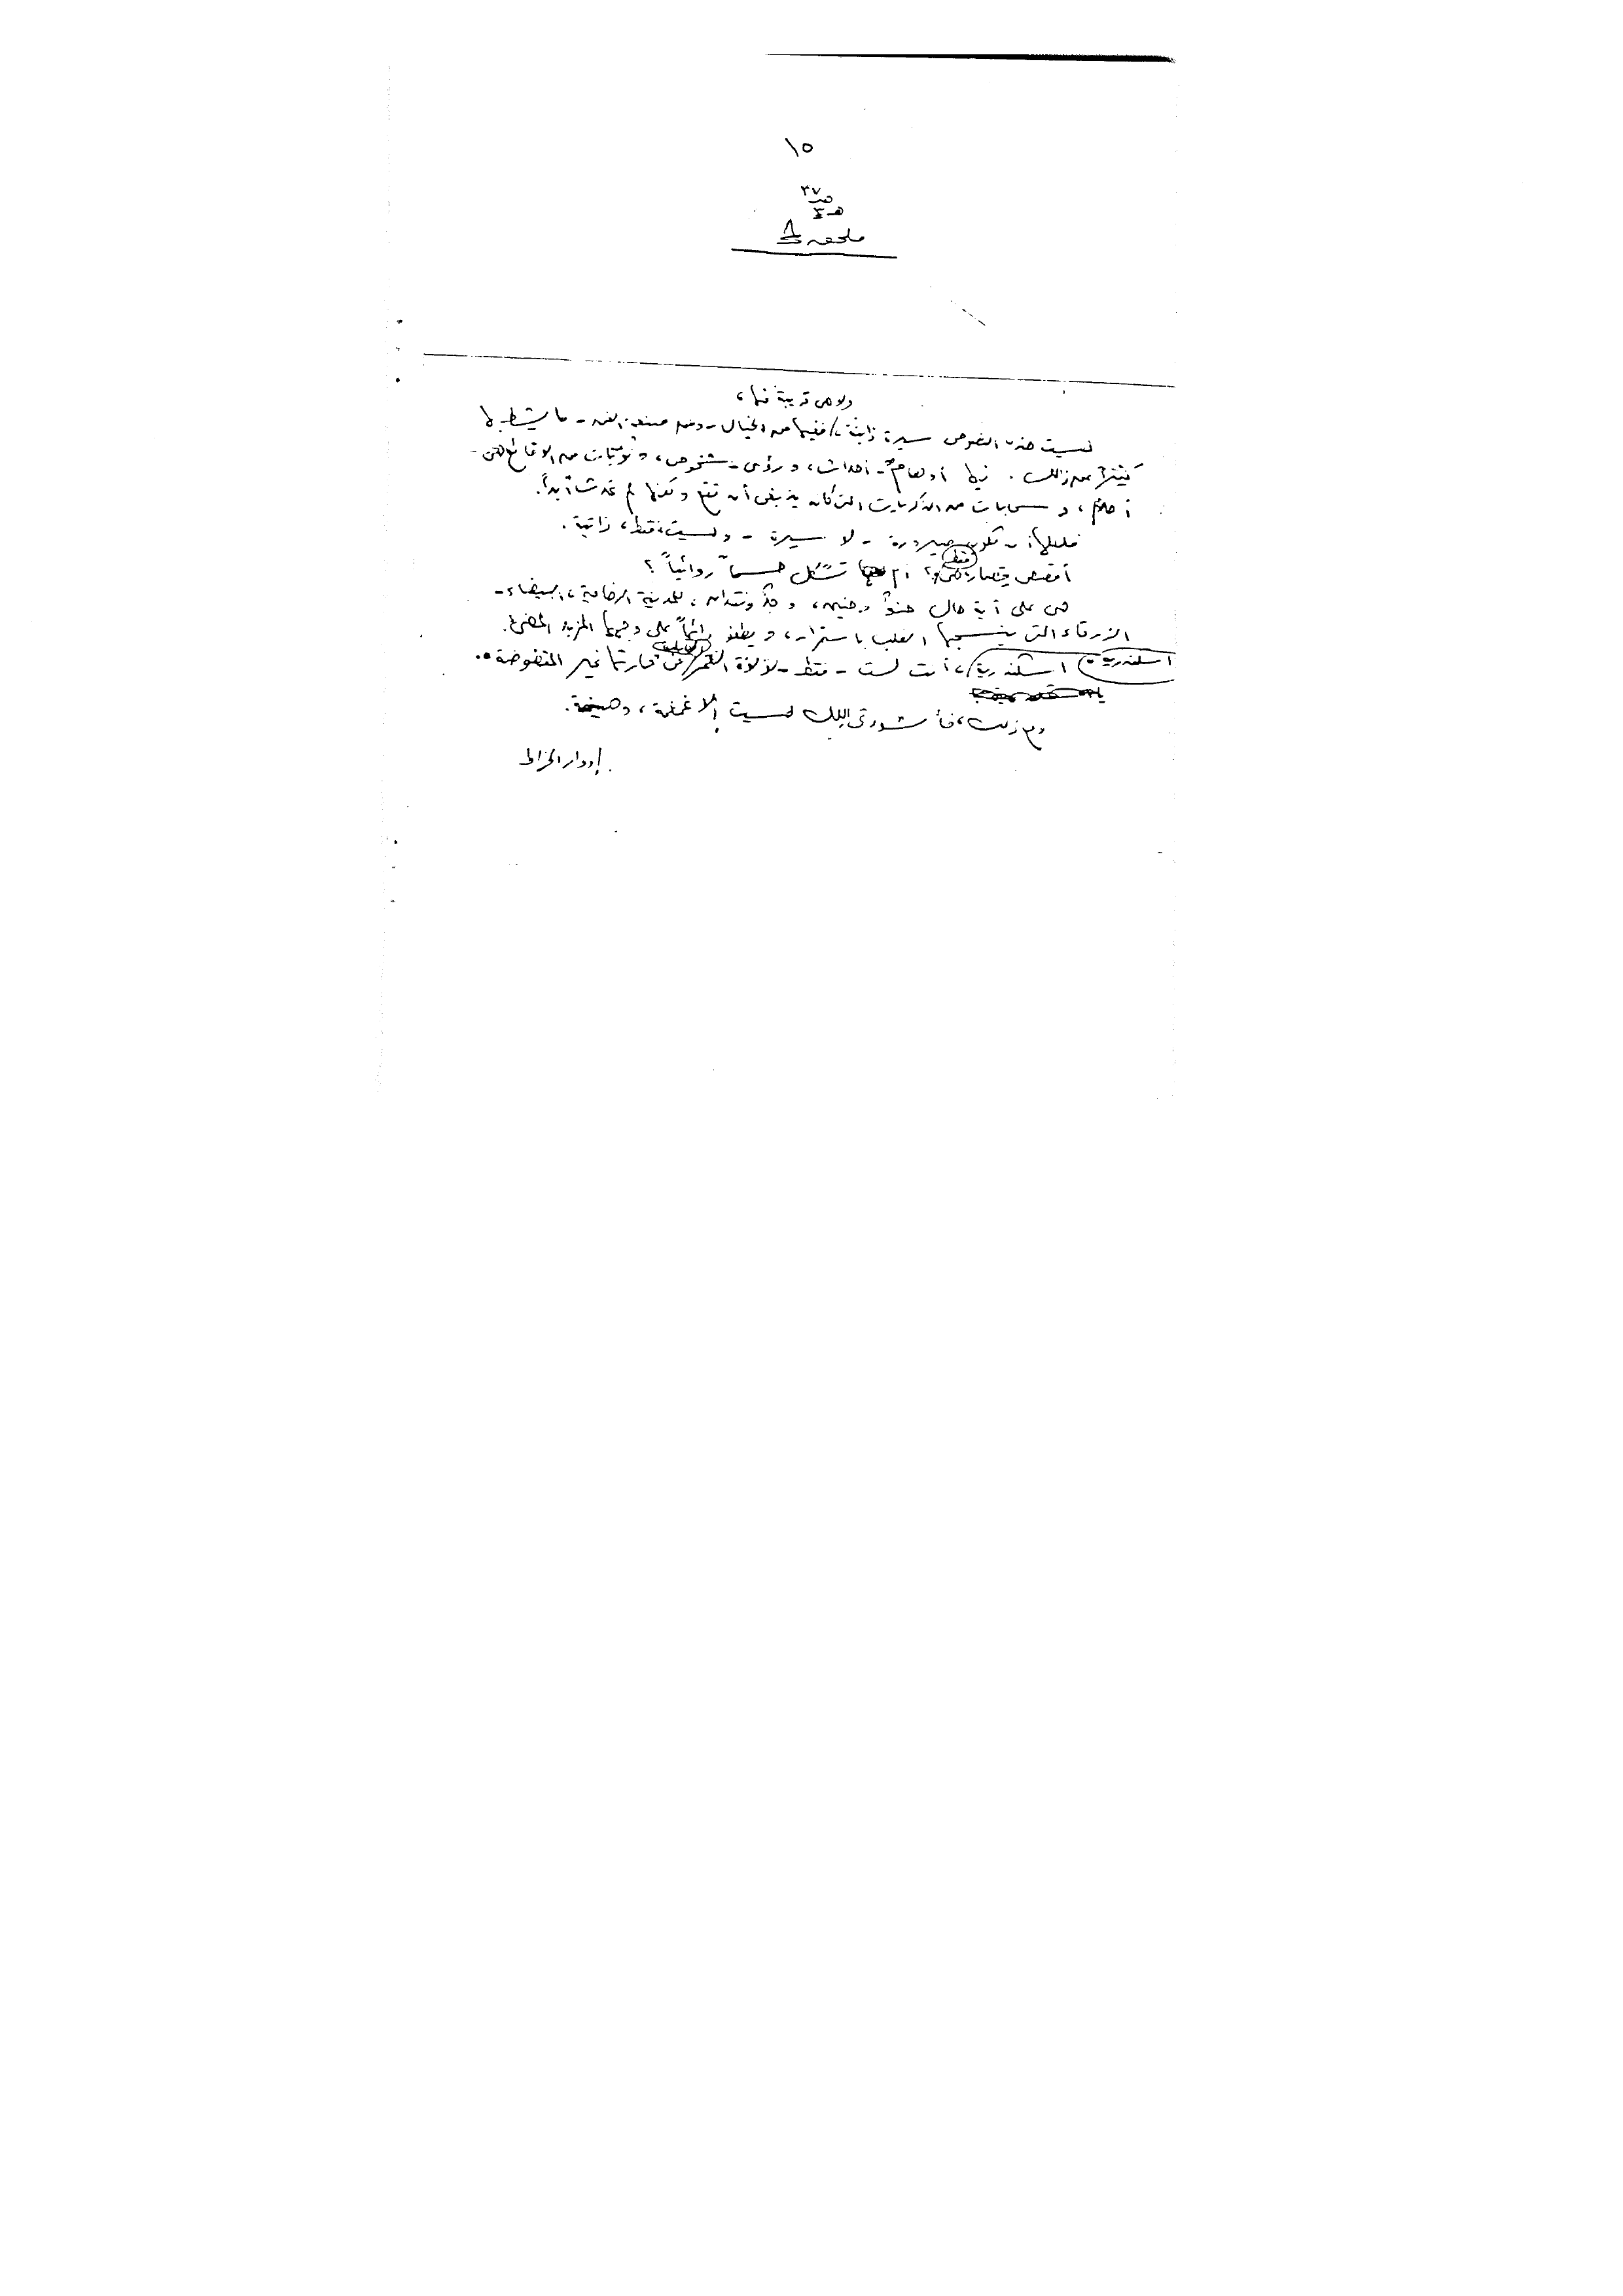 ١٥
ص٣٧
هـ ٤
ملحق ٨
ولا هي قريبة منها،
ليست هذه النصوص سيرة ذاتية، ففيها من الخيال - ومن صنعة الفن - ما يشطّ بها
كثيراً عن ذلك. فيها أوهام - أحداث، ورؤى - شخوص، ونويّات من الوقائع هي -
أحلام، وسحابات من الذكريات التي كان ينبغي أن تقع ولكنها لم تحدث أبداً.
فلعلها أن تكون صيرورة - لا سيرة - وليست، فقط، ذاتية.
فقط
أقصص قصار، هي؟ أم تشكل جسماً روائياً؟
هي على أية حال حنوّ وحنين، وجدٌ وفقدان، للمدينة الرخامية، البيضاء -
الزرقاء التي ينسجها القلب باستمرار، ويطفو دائماً على وجهها المزبد المضيء.
إسكندرية، إسكندرية، أنت لست - فقط - لؤلؤة العمر في محارتها غير المفضوضة.
ومع ذلك، فأنشودتي إليك ليست إلا غمغمة، وهينمة.
إدوار الخراط